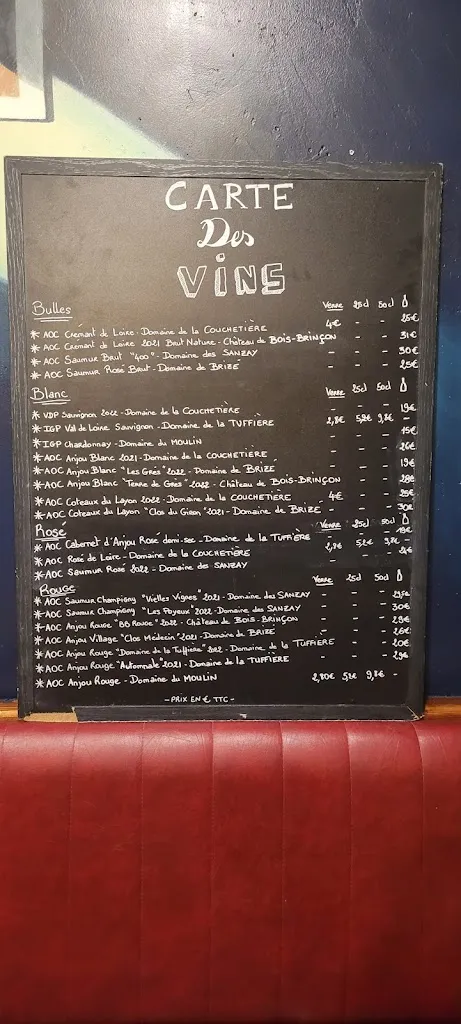 CARTE
Des
VINS
Bulles Verre 25cl 50cl
* AOC Crémant de Loire - Domaine de la COUCHETIÈRE 4€ - - 25€
* AOC Crémant de Loire 2021 Brut Nature - Château de BOIS-BRINÇON - - - 31€
* AOC Saumur Brut "400" - Domaine des SANZAY - - - 30€
* AOC Saumur Rosé Brut - Domaine de BRIZÉ - - - 25€
Blanc Verre 25cl 50cl
* VDP Sauvignon 2022 - Domaine de la COUCHETIÈRE - - - 19€
* IGP Val de Loire Sauvignon - Domaine de la TUFFIÈRE 2,8€ 5,2€ 9,8€ -
* IGP Chardonnay - Domaine du MOULIN - - - 15€
* AOC Anjou Blanc 2021 - Domaine de la COUCHETIÈRE - - -
* AOC Anjou Blanc "Les Grés" 2022 - Domaine de BRIZÉ - - - 19€
* AOC Anjou Blanc "Terre de Grès" 2022 - Château de BOIS-BRINÇON - - - 28€
* AOC Coteaux du Layon 2022 - Domaine de la COUCHETIÈRE 4€ - - 25€
* AOC Coteaux du Layon "Clos du Giron" 2021 - Domaine de BRIZÉ - - - 30€
Rosé Verre 25cl 50cl
* AOC Cabernet d'Anjou Rosé demi-sec - Domaine de la TUFFIÈRE - - -
* AOC Rosé de Loire - Domaine de la COUCHETIÈRE 2,8€ 5,2€ -
* AOC Saumur Rosé 2022 - Domaine des SANZAY - - -
Rouge Verre 25cl 50cl
* AOC Saumur Champigny "Vielles Vignes" 2021 - Domaine des SANZAY - - -
* AOC Saumur Champigny "Les Poyeux" 2022 - Domaine des SANZAY - - - 30€
* AOC Anjou Rouge 2022 - Château du BOIS-BRINÇON - - - 29€
* AOC Anjou Village "Clos Médecin" 2021 - Domaine de BRIZÉ - - - 26€
* AOC Anjou Rouge "Domaine de la Tuffière" 2022 - Domaine de la TUFFIÈRE - - - 20€
* AOC Anjou Rouge "Automnale" 2021 - Domaine de la TUFFIÈRE - - - 29€
* AOC Anjou Rouge - Domaine du MOULIN 2,80€ 5,2€ 9,8€ -
- PRIX EN € TTC -